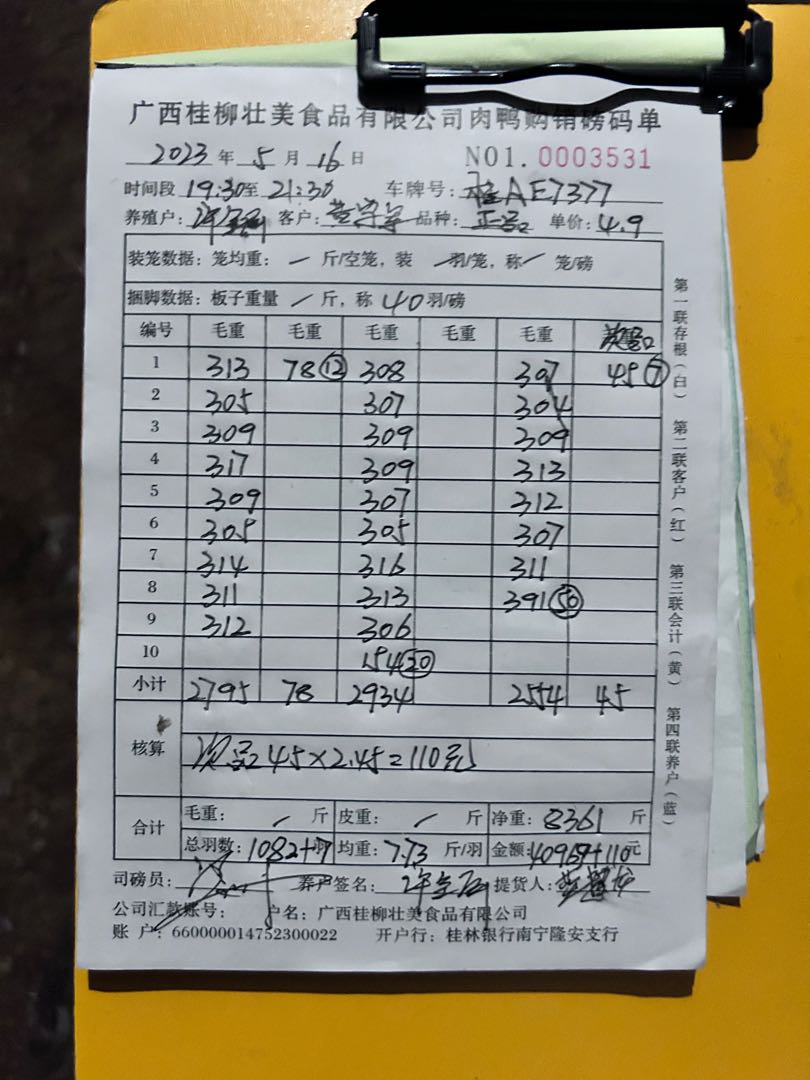 广西桂柳壮美食品有限公司肉鸭购销磅码单
2023 年 5 月 16 日 NO1. 0003531
时间段 19:30至 21:30 车牌号: 桂AE7377
养殖户: 客户: 品种: 正品 单价: 4.9
装笼数据: 笼均重: / 斤/空笼, 装 / 羽/笼, 称 / 笼/磅
捆脚数据: 板子重量 / 斤, 称 40 羽/磅
编号 毛重 毛重 毛重 毛重 毛重 次品
1 313 78⑫ 308 307 45⑦
2 305 307 304
3 309 309 309
4 317 309 313
5 309 307 312
6 305 305 307
7 314 316 311
8 311 313 391㊿
9 312 306
10 154⑳
小计 2795 78 2934 2554 45
核算 次品45×2.45=110元
合计 毛重: / 斤 皮重: / 斤 净重: 8361 斤
总羽数: 1082+7羽 均重: 7.73 斤/羽 金额: 40969+110元
司磅员: 养户签名: 提货人:
公司汇款账号: 户名: 广西桂柳壮美食品有限公司
账 户: 660000014752300022 开户行: 桂林银行南宁隆安支行
第一联存根(白) 第二联客户(红) 第三联会计(黄) 第四联养户(蓝)